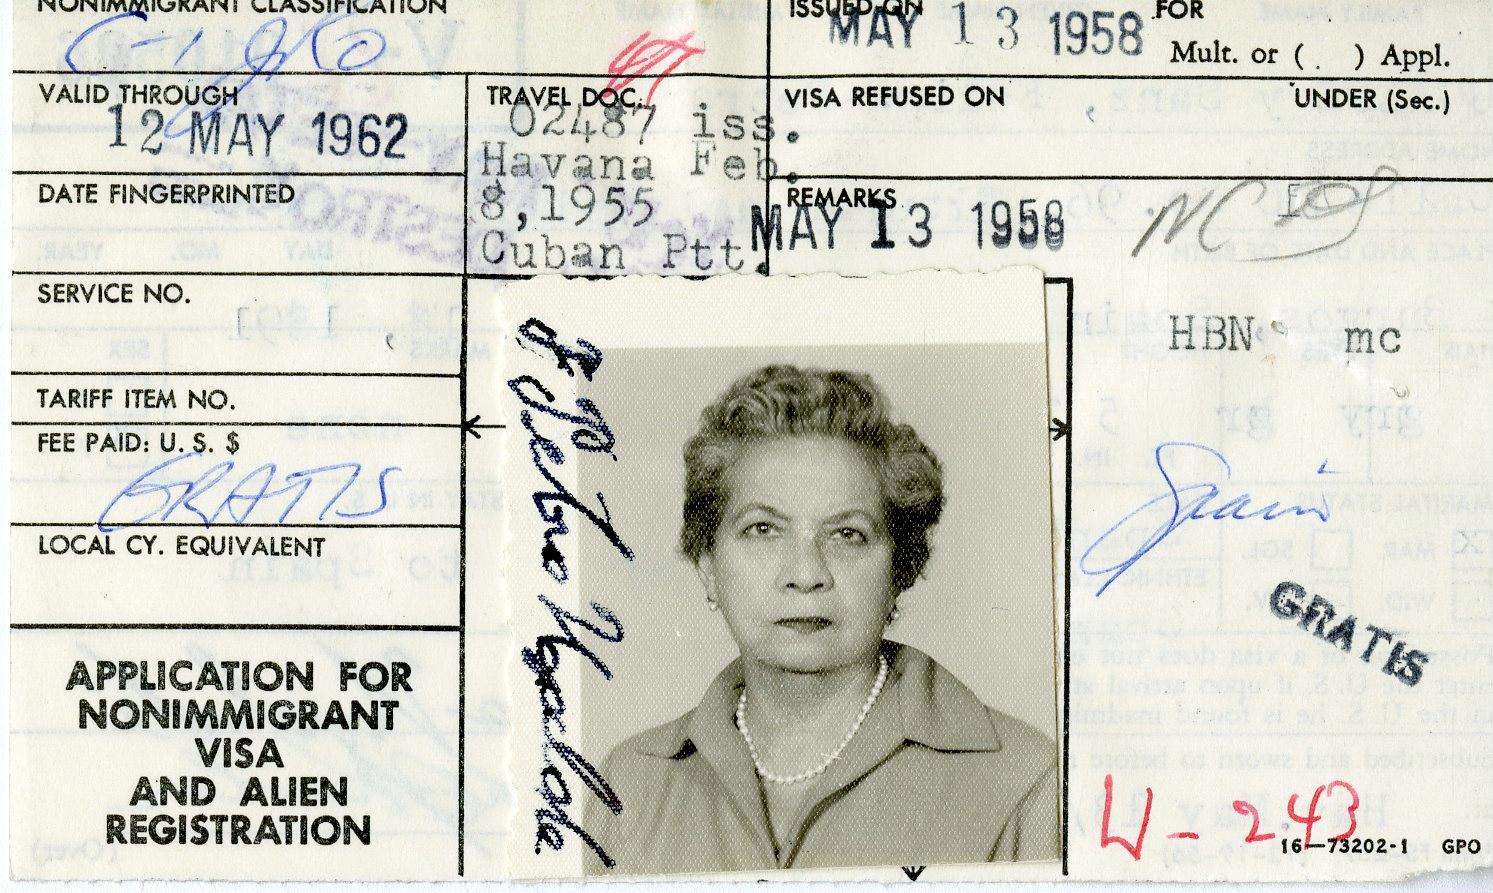 NONIMMIGRANT CLASSIFICATION
ISSUED ON
MAY 13 1958
FOR
Mult. or ( . ) Appl.
VALID THROUGH
12 MAY 1962
TRAVEL DOC.
02487 iss.
Havana Feb.
8,1955
Cuban Ptt.
VISA REFUSED ON
UNDER (Sec.)
DATE FINGERPRINTED
REMARKS
MAY 13 1958
NC
SERVICE NO.
HBN: mc
TARIFF ITEM NO.
FEE PAID: U. S. $
GRATIS
Spain
LOCAL CY. EQUIVALENT
GRATIS
APPLICATION FOR
NONIMMIGRANT
VISA
AND ALIEN
REGISTRATION
W-243
16—73202-1 GPO